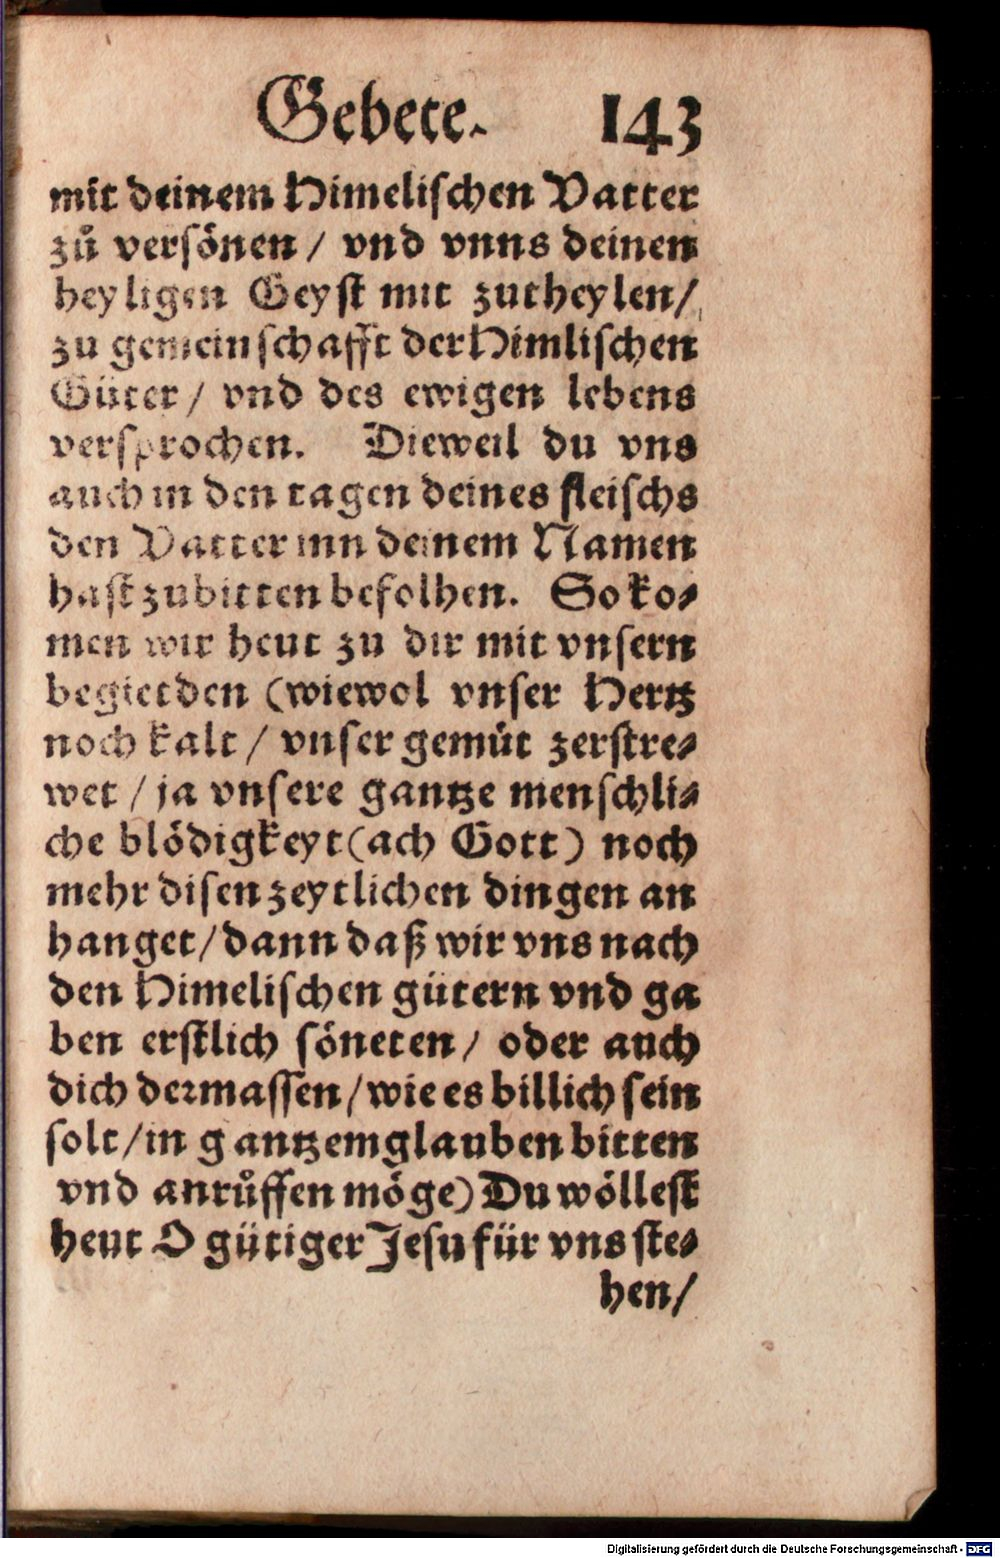 Gebete. 143
mit deinem Himelischen Vatter
zů versönen / vnd vnns deinen
heyligen Geyst mit zutheylen /
zu gemeinschafft der Himlischen
Güter / vnd des ewigen lebens
versprochen. Dieweil du vns
auch in den tagen deines fleischs
den Vatter inn deinem Namen
hast zubitten befolhen. So ko⸗
men wir heut zu dir mit vnsern
begierden (wiewol vnser Hertz
noch kalt / vnser gemüt zerstre⸗
wet / ja vnsere gantze menschli⸗
che blödigkeyt (ach Gott) noch
mehr disen zeytlichen dingen an
hanget / dann daß wir vns nach
den Himelischen gütern vnd ga
ben erstlich söneten / oder auch
dich dermassen / wie es billich sein
solt / in gantzem glauben bitten
vnd anrůffen möge) Du wöllest
heut O gütiger Jesu für vns ste⸗
hen /
Digitalisierung gefördert durch die Deutsche Forschungsgemeinschaft - DFG